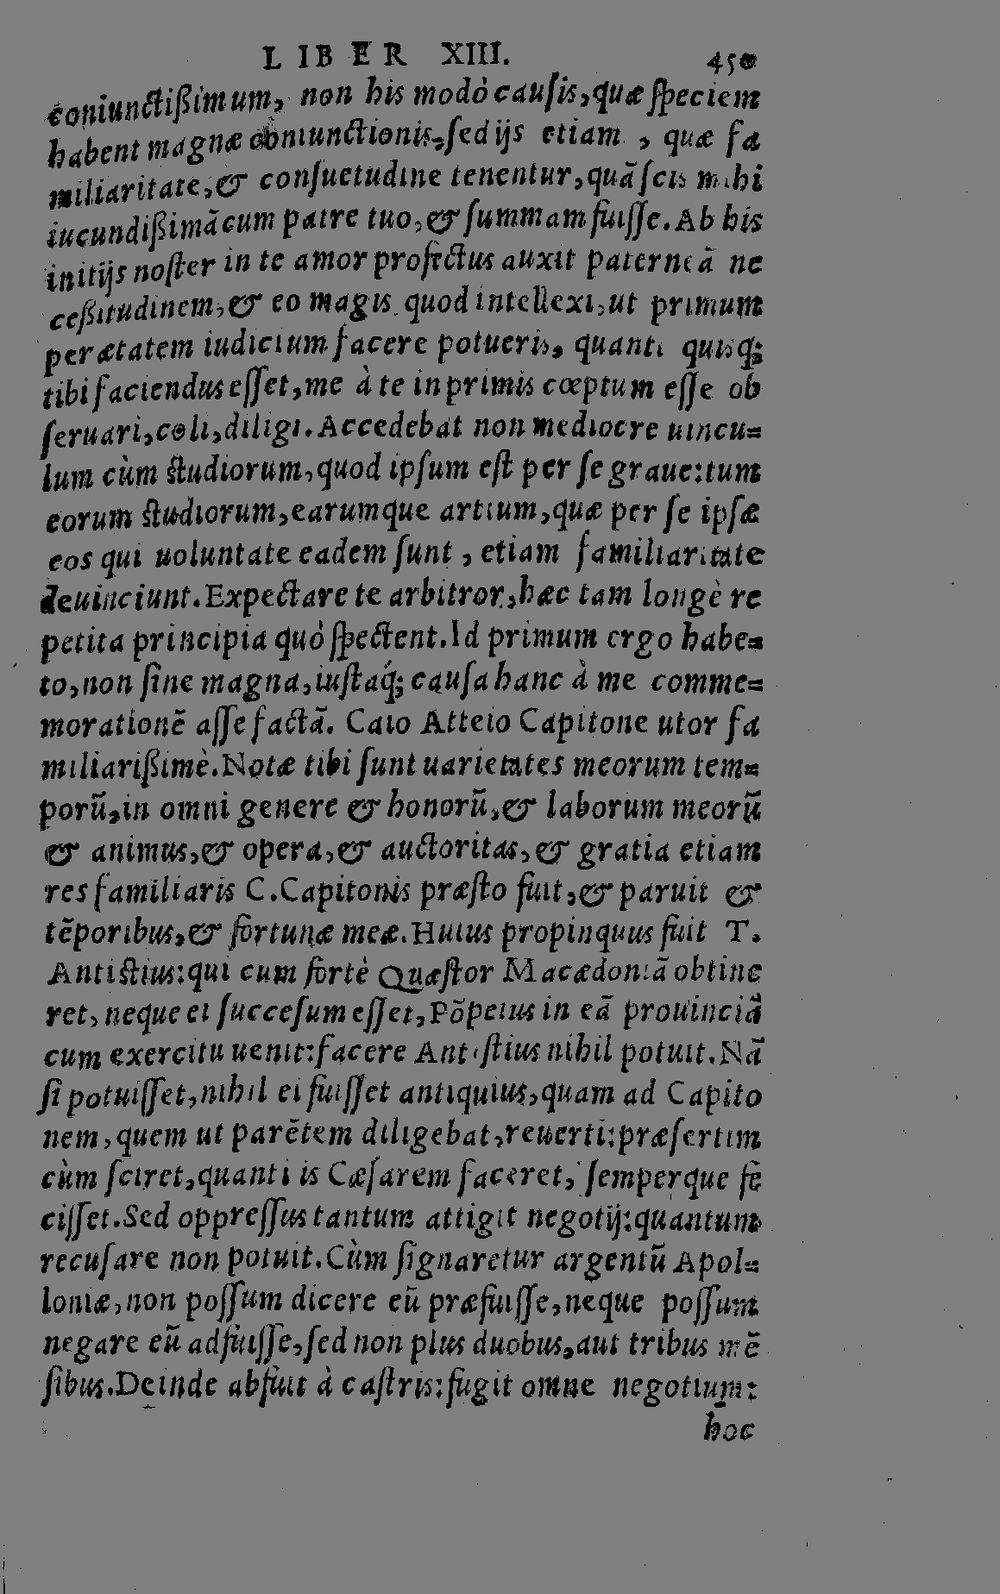 LIBER XIII. 450
coniunctißimum, non his modò causis, quæ speciem
habent magnæ coniunctionis, sed ijs etiam , quæ fa
miliaritate, & consuetudine tenentur, quā scis mihi
iucundißimā cum patre tuo, & summam fuisse. Ab his
initijs noster in te amor profectus auxit paternā ne
ceßitudinem, & eo magis. quod intellexi, ut primum
per ætatem iudicium facere potueris, quanti quisq;
tibi faciendus esset, me à te in primis cœptum esse ob
seruari, coli, diligi. Accedebat non mediocre uincu=
lum cùm studiorum, quod ipsum est per se graue: tum
eorum studiorum, earumque artium, quæ per se ipsæ
eos qui uoluntate eadem sunt , etiam familiaritate
deuinciunt. Expectare te arbitror, hæc tam longè re
petita principia quò spectent. Id primum ergo habe=
to, non sine magna, iustaq́; causa hanc à me comme=
morationē asse factā. Caio Atteio Capitone utor fa
miliarißimè. Notæ tibi sunt uarietates meorum tem=
porū, in omni genere & honorū, & laborum meorū
& animus, & opera, & auctoritas, & gratia etiam
res familiaris C. Capitonis præsto fuit, & paruit &
tēporibus, & fortunæ meæ. Huius propinquus fuit T.
Antistius: qui cum fortè Quæstor Macædoniā obtine
ret, neque ei succesum esset, Pōpeius in eā prouinciā
cum exercitu uenit: facere Antistius nihil potuit. Nā
si potuisset, nihil ei fuisset antiquius, quam ad Capito
nem, quem ut parētem diligebat, reuerti: præsertim
cùm sciret, quanti is Cæsarem faceret, semperque fe
cisset. Sed oppressus tantum attigit negotij: quantum
recusare non potuit. Cùm signaretur argentū Apol=
loniæ, non possum dicere eū præfuisse, neque possum
negare eū adfuisse, sed non plus duobus, aut tribus mē
sibus. Deinde abfuit à castris: fugit omne negotium:
hoc